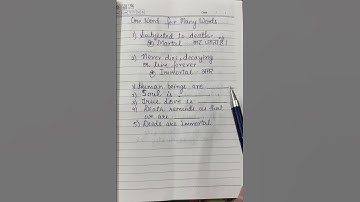 One Word for Many Words
1) Subjected to death -
Mortal
2) Never dies, decaying
or live forever
Immortal - अमर
1) Human beings are
2) Soul is
3) True love is
4) Death reminds us that
we are
5) Deeds are Immortal